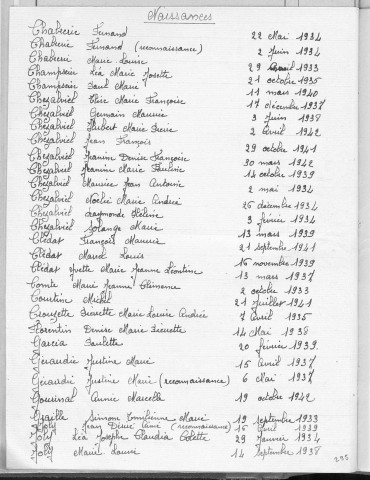 Naissances
Chabrerie Fernand 22 Mai 1934
Chabrerie Fernand (reconnaissance) 2 Juin 1934
Chabrerie Marie Louise 29 Avril 1933
Champseix Léa Marie Josette 21 octobre 1935
Champseix Paul Marie 11 mars 1940
Chezalviel Élise Marie Françoise 17 décembre 1937
Chezalviel Germain Maurice 3 Juin 1938
Chezalviel Hubert Marie Pierre 2 Avril 1942
Chezalviel Jean François 29 octobre 1941
Chezalviel Jeanine Denise Françoise 30 mars 1942
Chezalviel Jeannine Marie Pauline 14 octobre 1939
Chezalviel Maurice Jean Antoine 2 mai 1934
Chezalviel Noélie Marie Andrée 26 décembre 1934
Chezalviel Raymonde Hélène 3 février 1934
Chezalviel Solange Marie 13 mars 1939
Clédat François Maurice 21 septembre 1941
Clédat Marcel Louis 16 novembre 1939
Clédat Yvette Marie Jeanne Léontine 13 mars 1937
Comte Marie Jeanne Clémence 2 octobre 1933
Courtine Michel 21 Juillet 1941
Crouzette Pierrette Marie Louise Andrée 7 Avril 1935
Florentin Denise Marie Pierrette 14 Mai 1938
Garcia Paulette 20 février 1939
Géraudie Justine Marie 15 avril 1937
Géraudie Justine Marie (reconnaissance) 6 Mai 1937
Goursinal Annie Marcelle 19 octobre 1942
Graille Simone Emilienne Marie 19 septembre 1933
Joly Jean Pierre René (reconnaissance) 15 Avril 1939
Joly Léa Josèphe Claudia Colette 29 Janvier 1934
Joly Marie Louise 14 septembre 1938